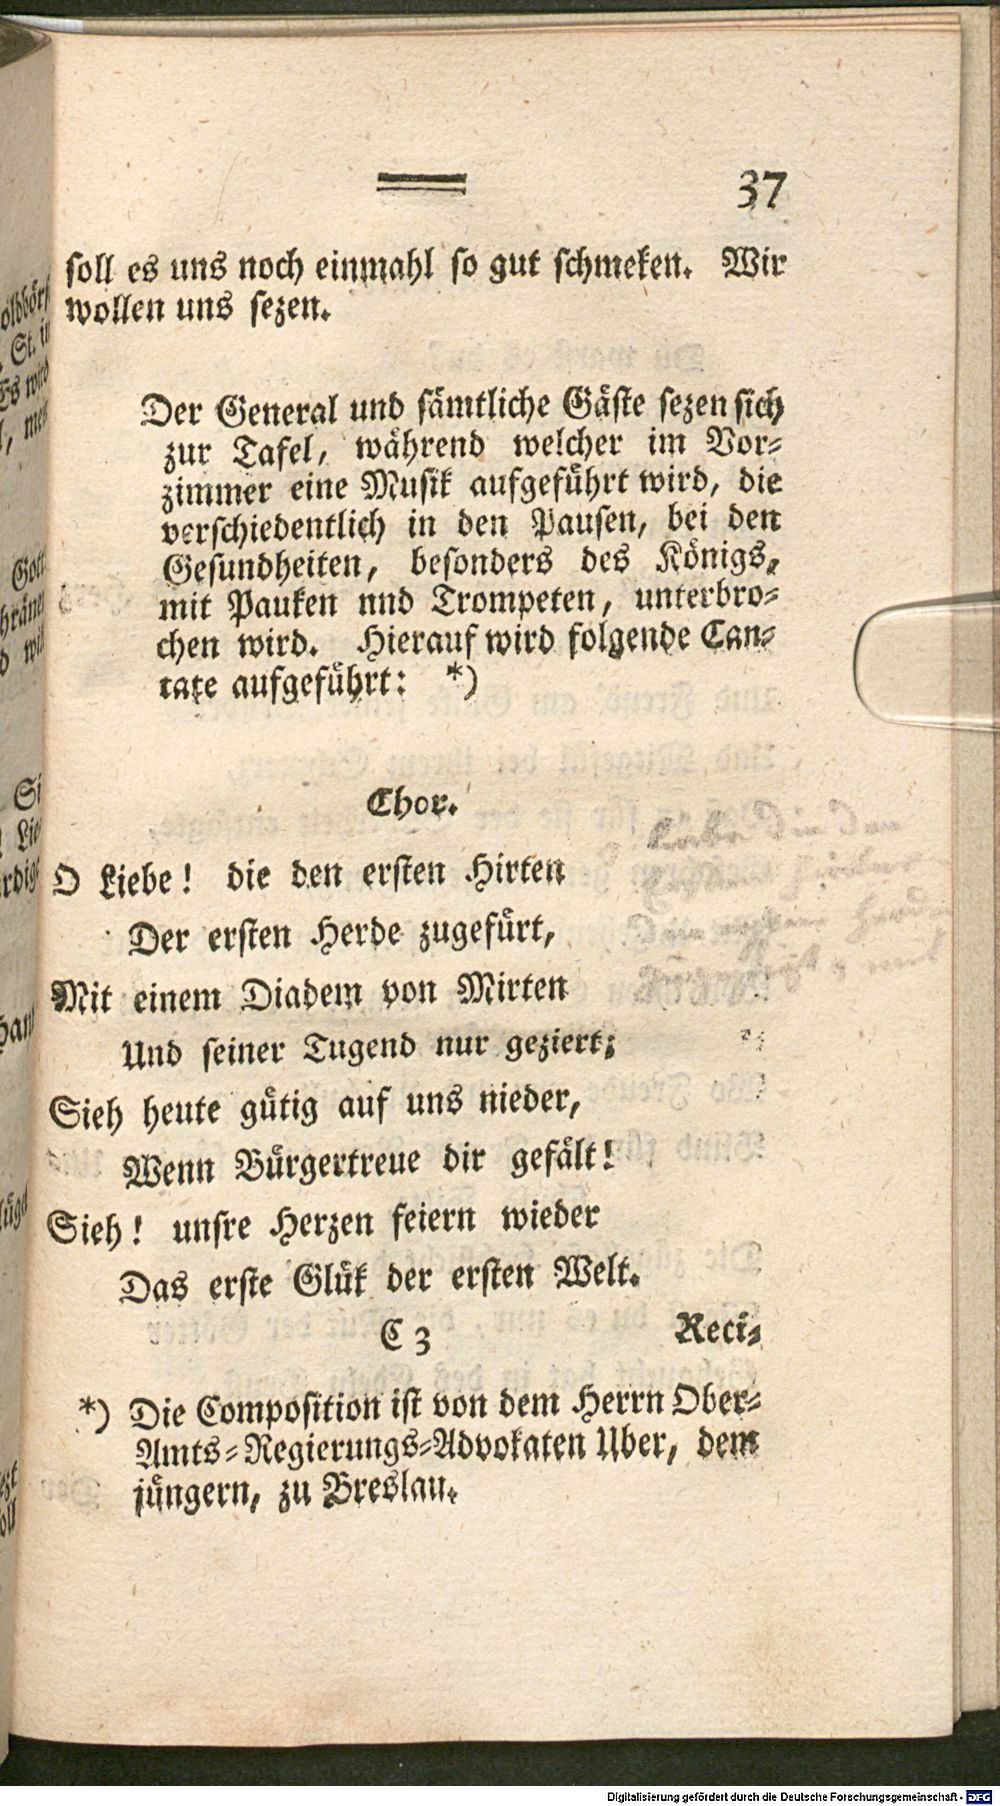 37
soll es uns noch einmahl so gut schmeken. Wir
wollen uns sezen.
Der General und sämtliche Gäste sezen sich
zur Tafel, während welcher im Vor-
zimmer eine Musik aufgeführt wird, die
verschiedentlich in den Pausen, bei den
Gesundheiten, besonders des Königs,
mit Pauken nnd Trompeten, unterbro-
chen wird. Hierauf wird folgende Can-
tate aufgeführt: *)
Chor.
O Liebe! die den ersten Hirten
Der ersten Herde zugefürt,
Mit einem Diadem von Mirten
Und seiner Tugend nur geziert;
Sieh heute gütig auf uns nieder,
Wenn Bürgertreue dir gefält!
Sieh! unsre Herzen feiern wieder
Das erste Glük der ersten Welt.
C 3 Reci-
*) Die Composition ist von dem Herrn Ober-
Amts-Regierungs-Advokaten Uber, dem
jüngern, zu Breslau.
Digitalisierung gefördert durch die Deutsche Forschungsgemeinschaft - DFG